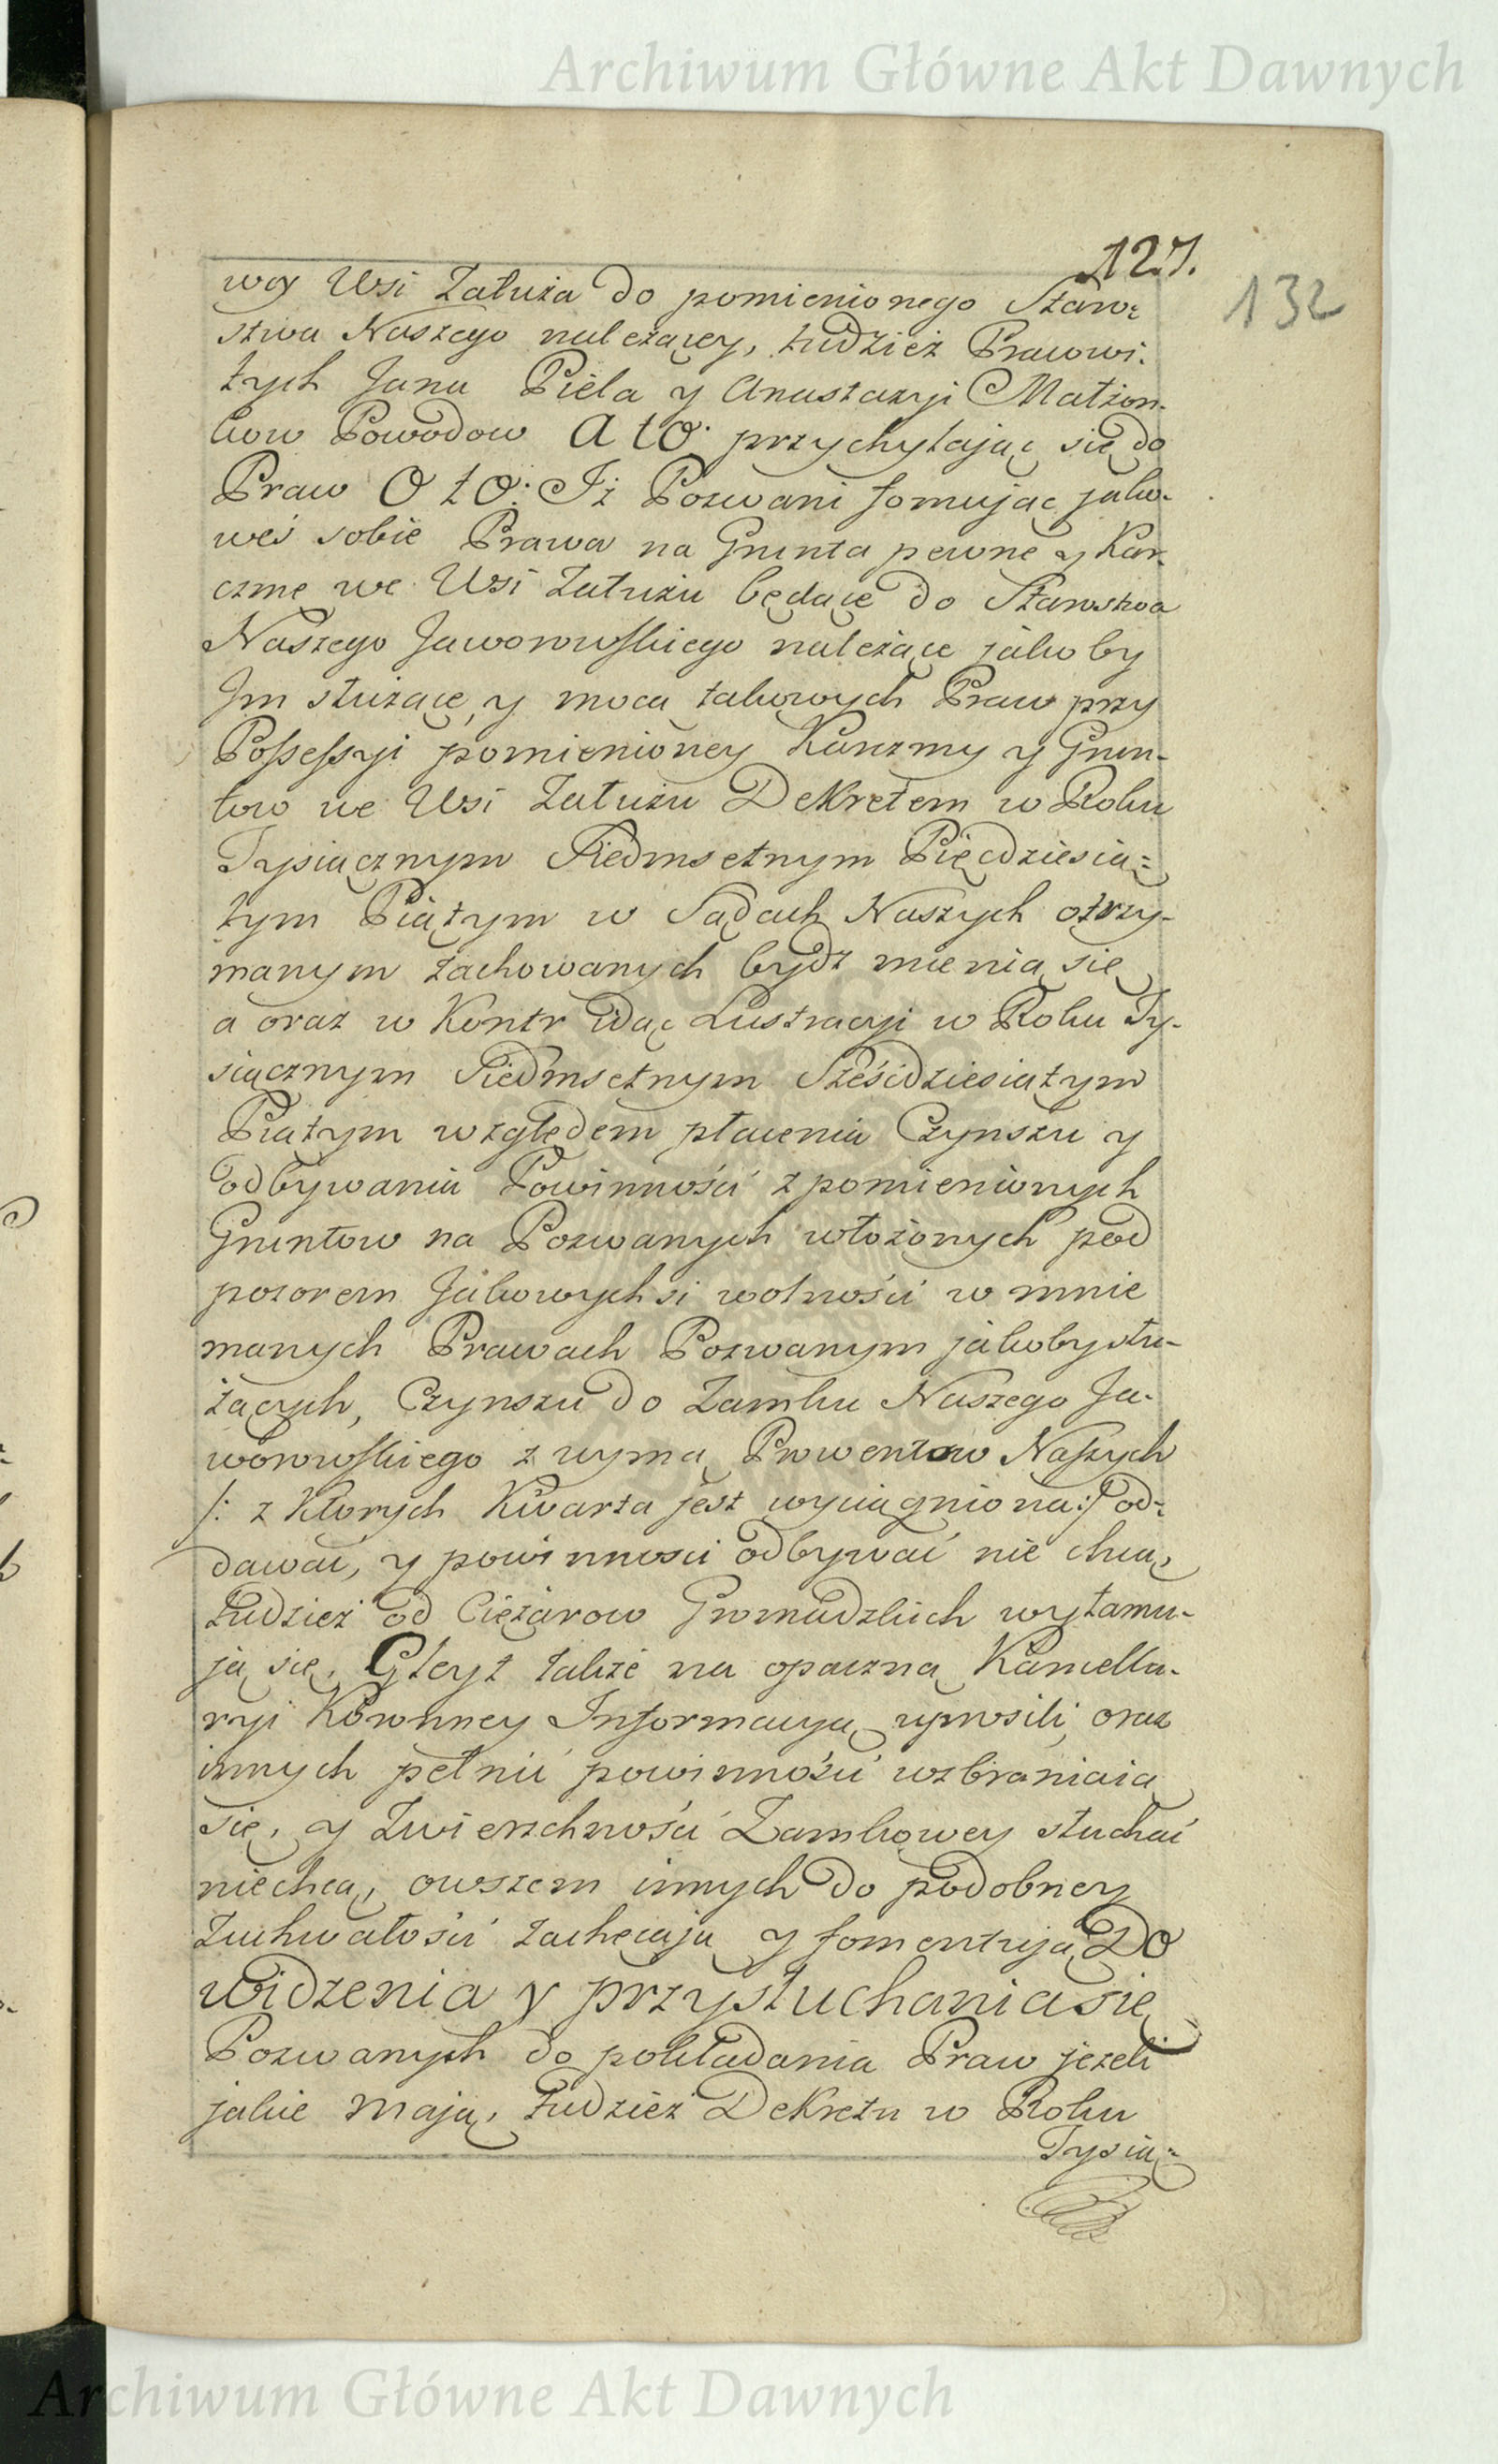 Archiwum Główne Akt Dawnych
127.
132
wey Wsi Załuża do pomienionego Staro-
stwa Naszego należącey, tudzież Pracowi-
tych Jana Piela y Anastazyi Małżon-
kow Powodow A to: przychylając się do
Praw O to: Iż Pozwani fomując jako-
weś sobie Prawa na Grunta pewne y Kar-
czmę we Wsi Załużu będące do Starostwa
Naszego Jaworowskiego należące jakoby
Im służące, y mocą takowych Praw przy
Possessyi pomienioney Karczmy y Grun-
tow we Wsi Załużu Dekretem w Roku
Tysiącznym Siedmsetnym Pięcdziesią=
tym Piątym w Sądach Naszych otrzy-
manym zachowanych bydz mienią się
a oraz w Kontr idąc Lustracyi w Roku Ty-
siącznym Siedmsetnym Sześcdziesiatym
Piatym względem płacenia Czynszu y
odbywania Powinności z pomienionych
Gruntow na Pozwanych włożonych pod
pozorem Jakowychsi wolności w mnie
manych Prawach Pozwanym jakoby słu-
żących, Czynszu do Zamku Naszego Ja-
worowskiego z wymą Prowentow Naszych
/: z Ktorych Kwarta jest wyciągniona:/ od=
dawać, y powinnosci odbywać nie chcą,
tudzież od Ciężarow Gromadzkich wyłamu-
ją się, Gleyt także na opaczną Kancella-
ryi Koronney Informacyą wynosili, oraz
innych pełnić powinności wzbraniaią
się, y Zwierzchności Zamkowey słuchać
niechcą, owszem innych do podobney
Zuchwałości zachęcają y fomentują Do
widzenia y przysłuchania się
Pozwanych do pokładania Praw jeżeli
jakie mają, tudzież Dekretu w Roku
Tysią=
Archiwum Główne Akt Dawnych